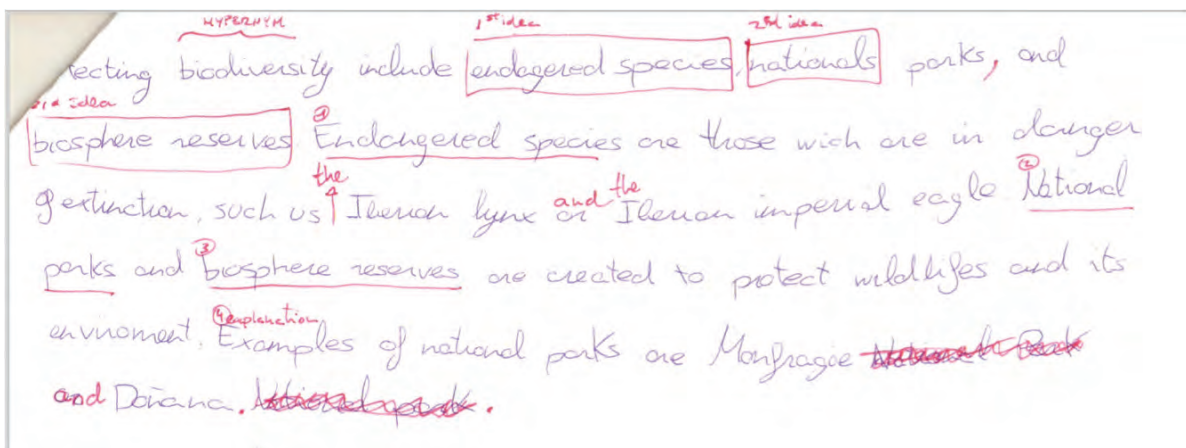 HYPERNYM 1st idea 2nd idea
tecting biodiversity include endagered species, nationals parks, and
3rd idea
biosphere reserves ① Endangered species are those wich are in danger
of extinction, such us the Iberian lynx and the Iberian imperial eagle ② National
parks and ③ biosphere reserves are created to protect wildlifes and its
enviroment. ④ explanation Examples of national parks are Monfragüe
and Doñana.